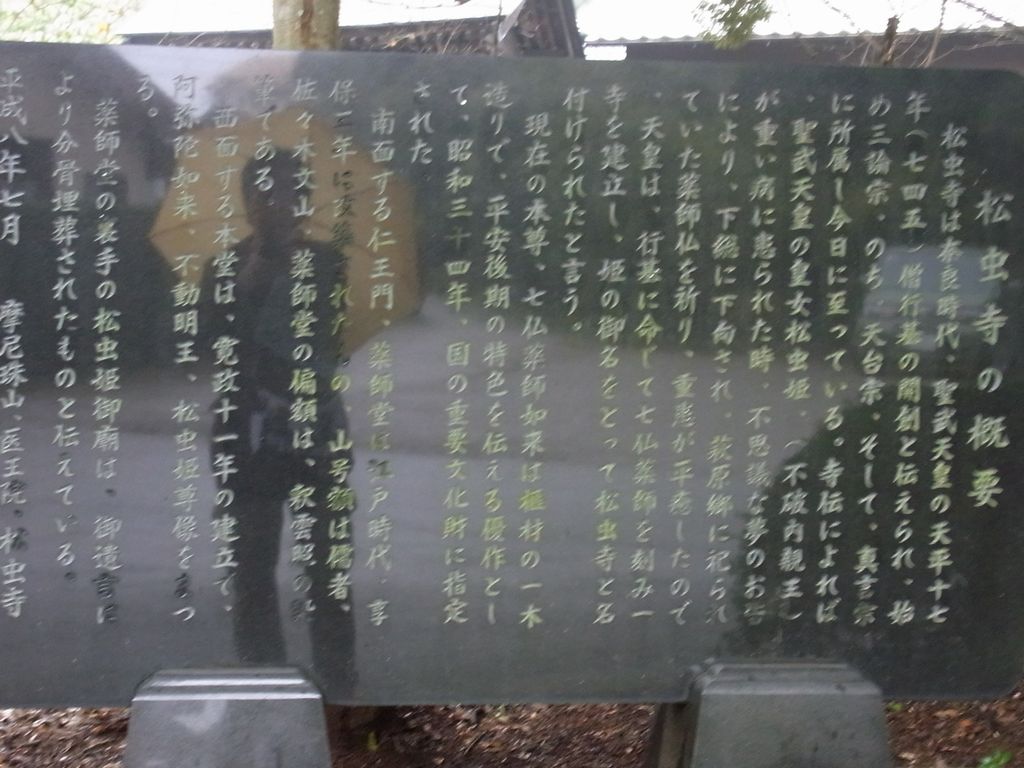 松虫寺の概要
松虫寺は奈良時代、聖武天皇の天平十七
年(七四五)僧行基の開創と伝えられ、始
め三論宗、のち天台宗、そして、真言宗
に所属し今日に至っている。寺伝によれば
、聖武天皇の皇女松虫姫、(不破内親王)
が重い病に患られた時、不思議な夢のお
により、下総に下向され、萩原郷に祀られ
ていた薬師仏を祈り、重患が平癒したので
、天皇は、行基に命して七仏薬師を刻み一
寺を建立し、姫の御名をとって松虫寺と名
付けられたと言う。
現在の本尊、七仏薬師如来は榧材の一木
造りで、平安後期の特色を伝える優作とし
て、昭和三十四年、国の重要文化財に指定
された
南面する仁王門、薬師堂は江戸時代、享
保三年に改築されたもの、山号額は儒者、
佐々木文山、薬師堂の偏額は、釈雲照の
筆である。
西面する本堂は、寛政十一年の建立で、
阿弥陀如来、不動明王、松虫姫尊像をまつ
る。
薬師堂の裏手の松虫姫御廟は、御遺言に
より分骨埋葬されたものと伝えている。
平成八年七月 摩尼珠山、医王院、松虫寺